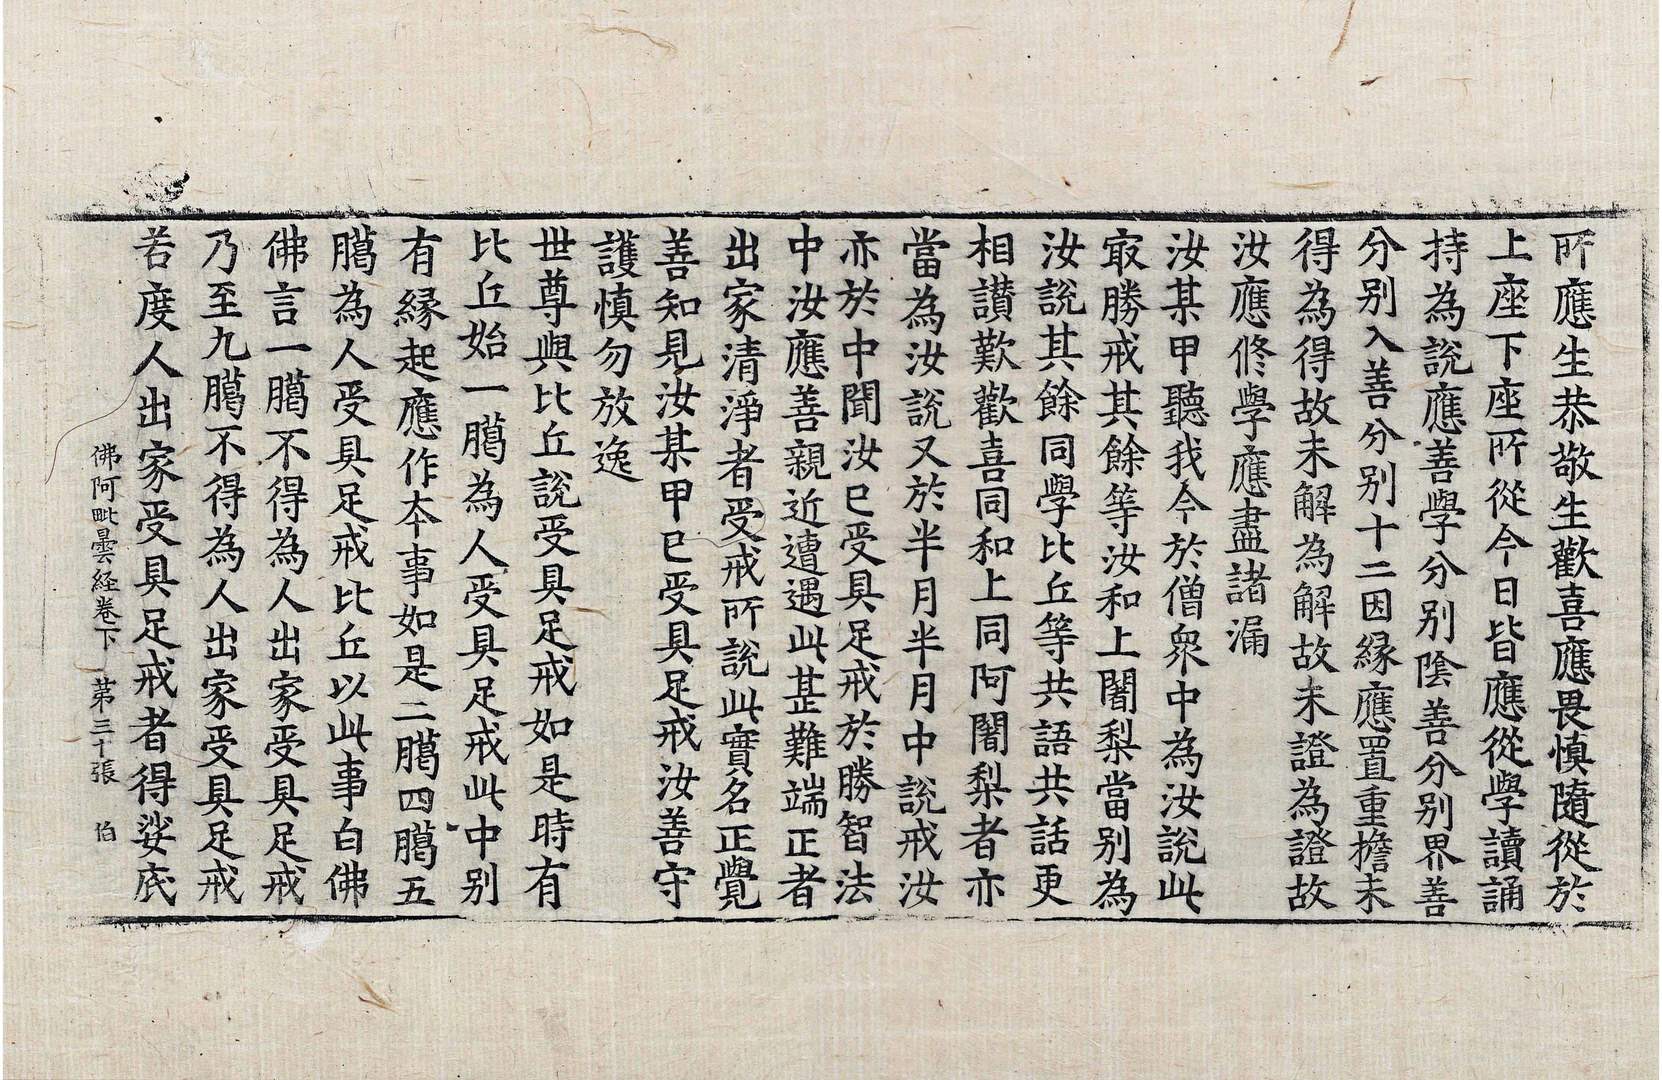 所應生恭敬生歡喜應畏慎隨從於
上座下座所從今日皆應從學讀誦
持為說應善學分别陰善分别界善
分别入善分别十二因縁應置重擔未
得為得故未解為解故未證為證故
汝應修學應盡諸漏
汝某甲聽我今於僧衆中為汝說此
㝡勝戒其餘等汝和上闍梨當别為
汝說其餘同學比丘等共語共話更
相讃歎歡喜同和上同阿闍梨者亦
當為汝說又於半月半月中說戒汝
亦於中聞汝已受具足戒於勝智法
中汝應善親近遭遇此甚難端正者
出家清淨者受戒所說此實名正覺
善知見汝某甲已受具足戒汝善守
護慎勿放逸
世尊與比丘說受具足戒如是時有
比丘始一臈為人受具足戒此中别
有縁起應作本事如是二臈四臈五
臈為人受具足戒比丘以此事白佛
佛言一臈不得為人出家受具足戒
乃至九臈不得為人出家受具足戒
若度人出家受具足戒者得娑底
佛阿毗曇経卷下 第三十張 伯